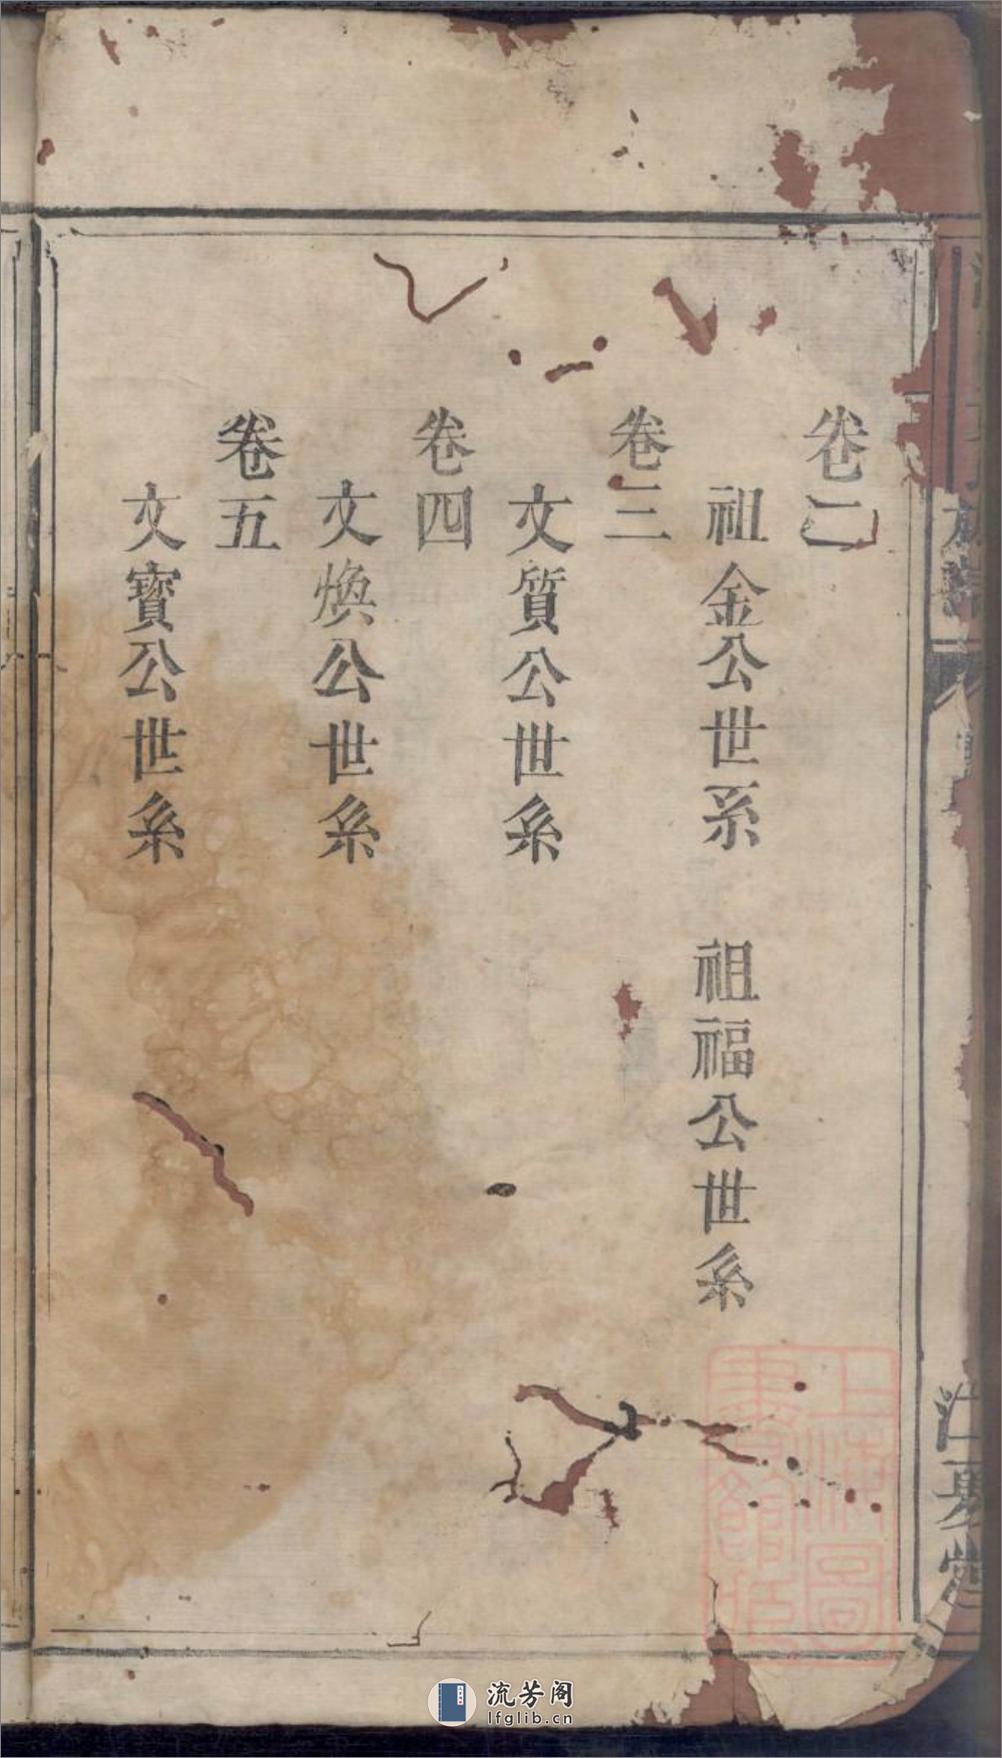 卷二
祖金公世系 祖福公世系
卷三
文質公世系
卷四
文煥公世系
卷五
文寶公世系
族譜
江夏堂
上海圖書館藏
流芳阁
lfglib.cn